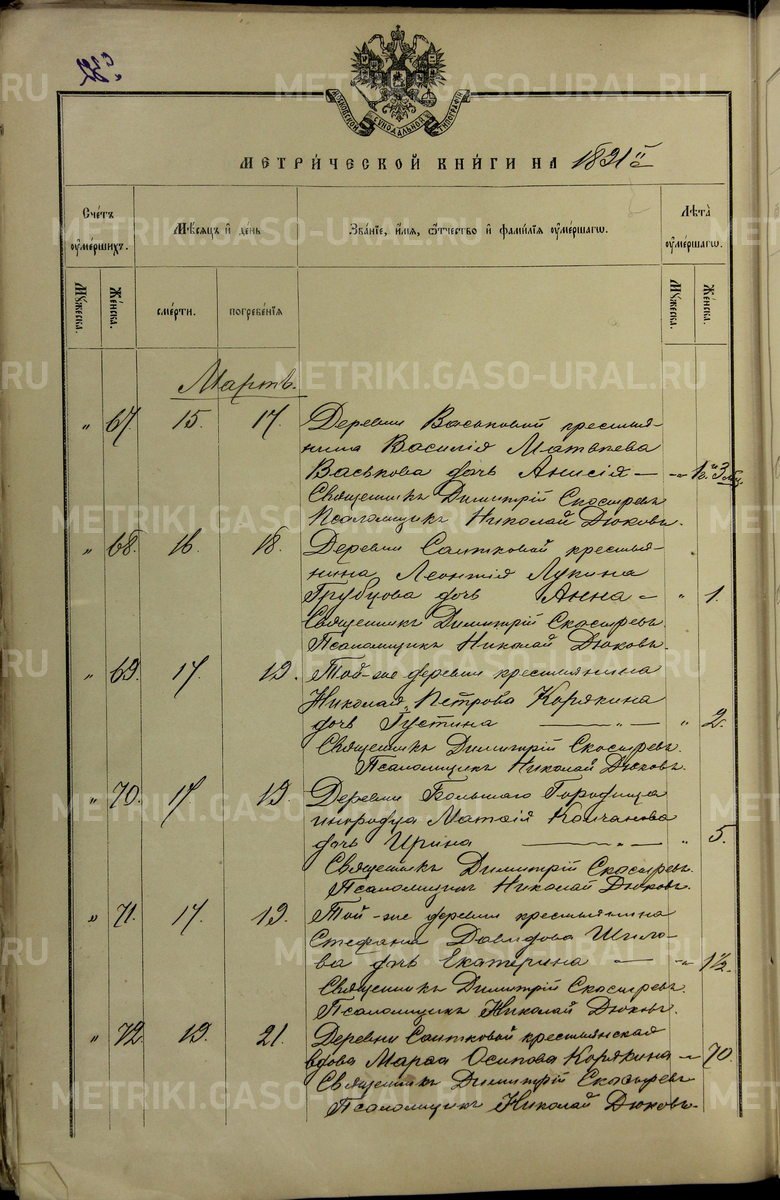 МОСКОВСКОЙ СѴНОДАЛЬНОЙ ТИПОГРАФІИ
МЕТРИ́ЧЕСКОЙ КНИ́ГИ НА 1891 й
Сче́тъ оумершихъ.
Мѣсяцъ и де́нь
Зва́ніе, и́мя, ѻтчество и фами́лія оуме́ршагѡ.
Лѣта̀ оуме́ршагѡ.
Мꙋжеска.
Же́нска.
сме́рти.
погребе́нія
Мꙋжеска.
Же́нска.
Мартъ.
" 67. 15. 17. Деревни Васьковой крестья-
нина Василія Матвѣева
Васькова дочь Анисія — " 1 г. и 3 мѣс.
Священникъ Димитрій Скосыревъ
Псаломщикъ Николай Дюковъ.
" 68. 16. 18. Деревни Саитковой крестья-
нина Леонтія Лукина
Трубцова дочь Анна — " 1.
Священникъ Димитрій Скосыревъ
Псаломщикъ Николай Дюковъ.
" 69. 17. 19. Той-же деревни крестьянина
Николая Петрова Корякина
дочь Густина — " — " 2.
Священникъ Димитрій Скосыревъ.
Псаломщикъ Николай Дюковъ.
" 70. 17. 19. Деревни Большаго Городища
инородца Матѳія Колчанова
дочь Ирина — " — " 5.
Священникъ Димитрій Скосыревъ.
Псаломщикъ Николай Дюковъ.
" 71. 17. 19. Той-же деревни крестьянина
Стефана Давидова Шило-
ва дочь Екатерина — " 1½.
Священникъ Димитрій Скосыревъ.
Псаломщикъ Николай Дюковъ.
" 72. 19. 21. Деревни Саитковой крестьянская
вдова Марѳа Осипова Корякина — 70.
Священникъ Димитрій Скосыревъ
Псаломщикъ Николай Дюковъ.
METRIKI.GASO-URAL.RU